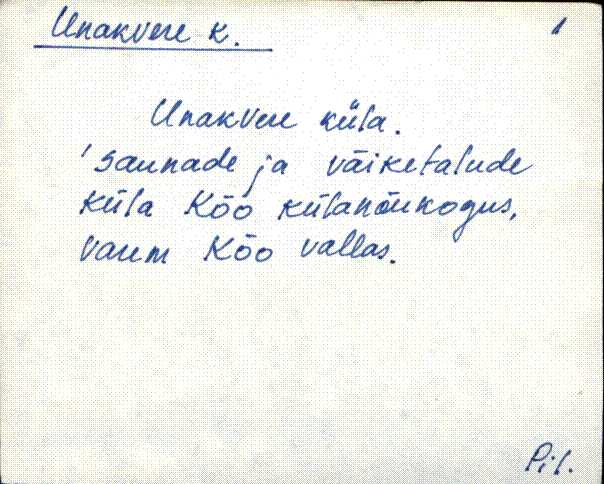 Unakvere k.
Unakvere küla.
'saunade ja väiketalude
küla Kõo külanõukogus,
varem Kõo vallas.
Pil.